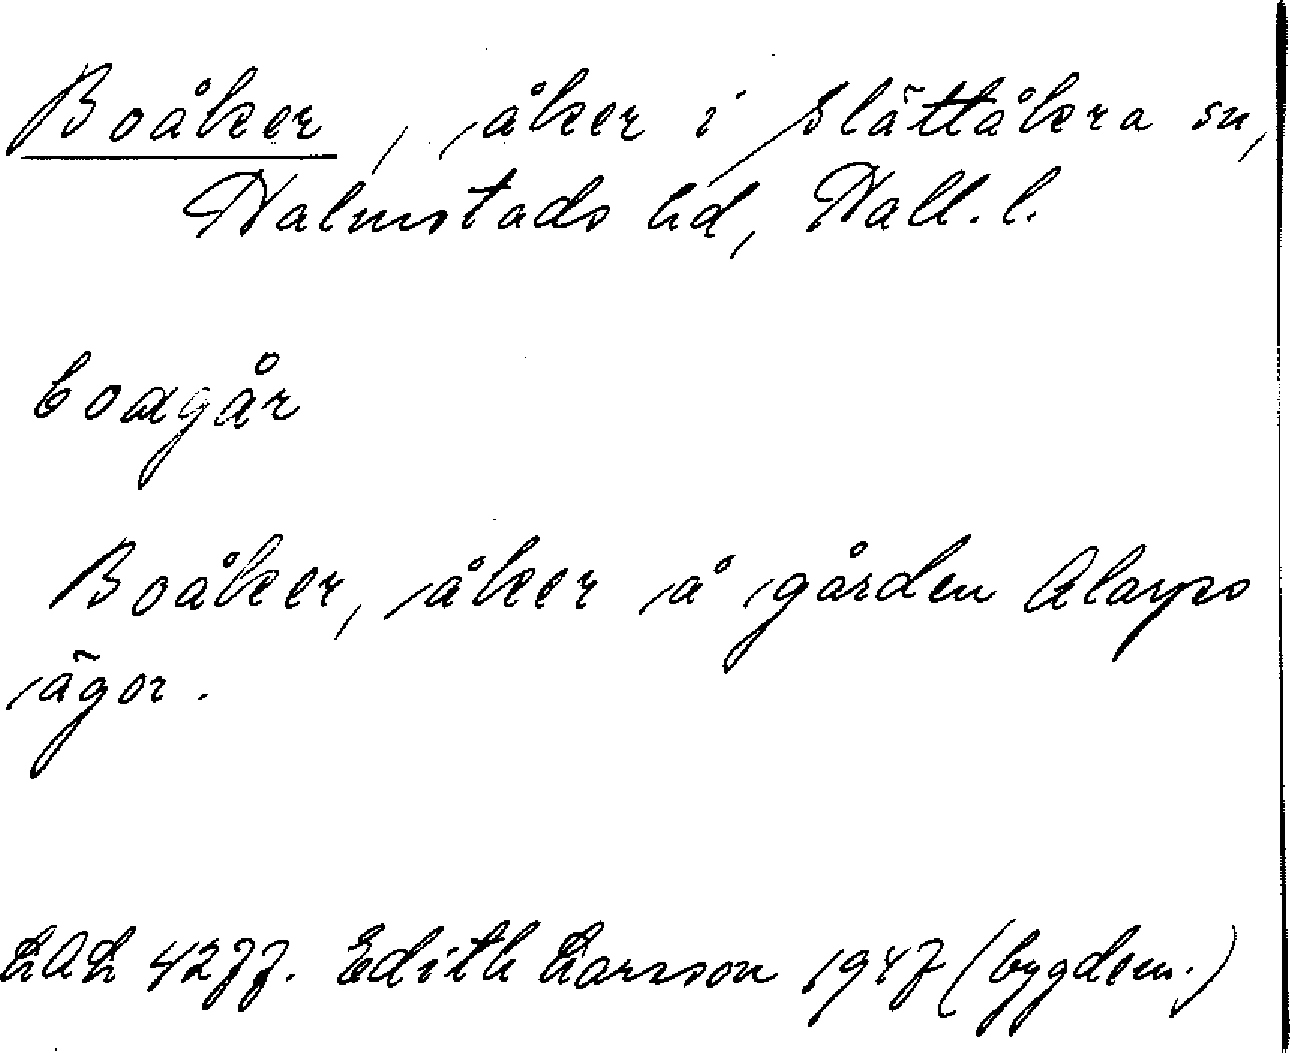 Boåker, åker i Slättåkra sn,
Halmstads hd, Hall. l.
boagår
Boåker, åker å gården Alarps
ägor.
LAL 4277. Edith Larsson 1947 (bygdem.)